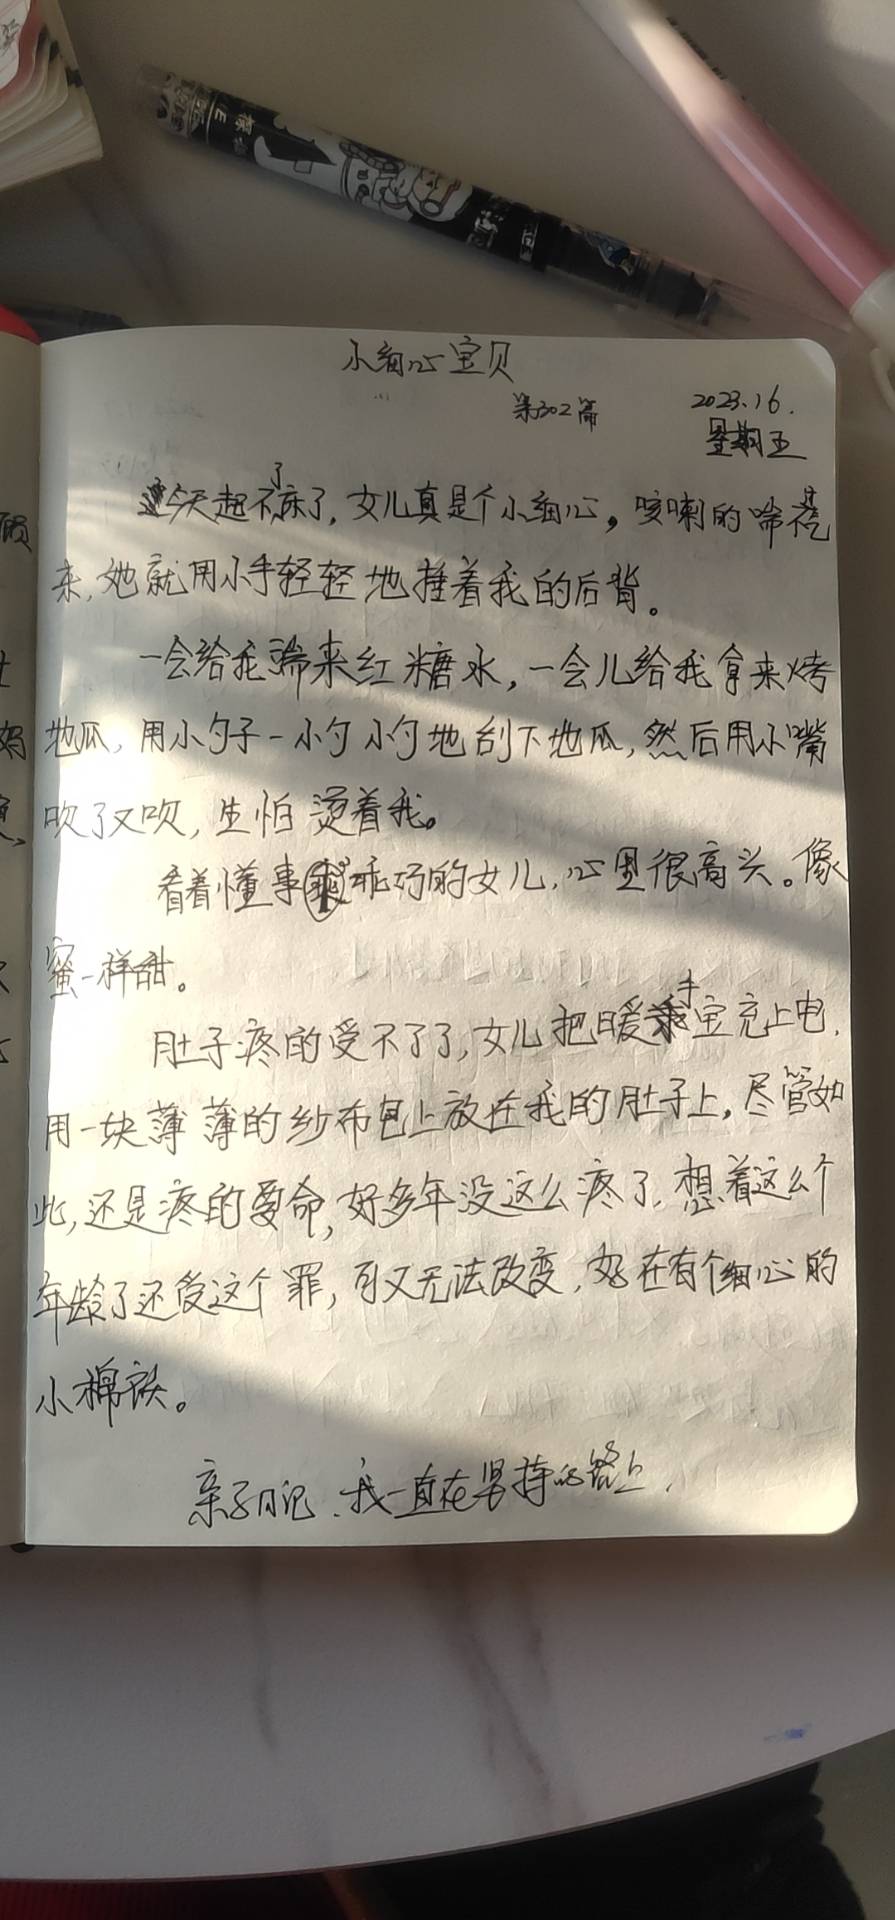 小细心宝贝
第302篇 2023.1.6.
星期五
今天起不了床了，女儿真是个小细心，咳喇的喘
来，她就用小手轻轻地捶着我的后背。
一会给我端来红糖水，一会儿给我拿来烤
地瓜，用小勺子一小勺小勺地刮下地瓜，然后用小嘴
吹了又吹，生怕烫着我。
看着懂事乖巧的女儿，心里很高头。像
蜜一样甜。
肚子疼的受不了了，女儿把暖手宝充上电，
用一块薄薄的纱布包上放在我的肚子上，尽管如
此，还是疼的要命，好多年没这么疼了，想着这么个
年龄了还受这个罪，可又无法改变，好在有个细心的
小棉袄。
亲子日记，我一直在坚持的路上，